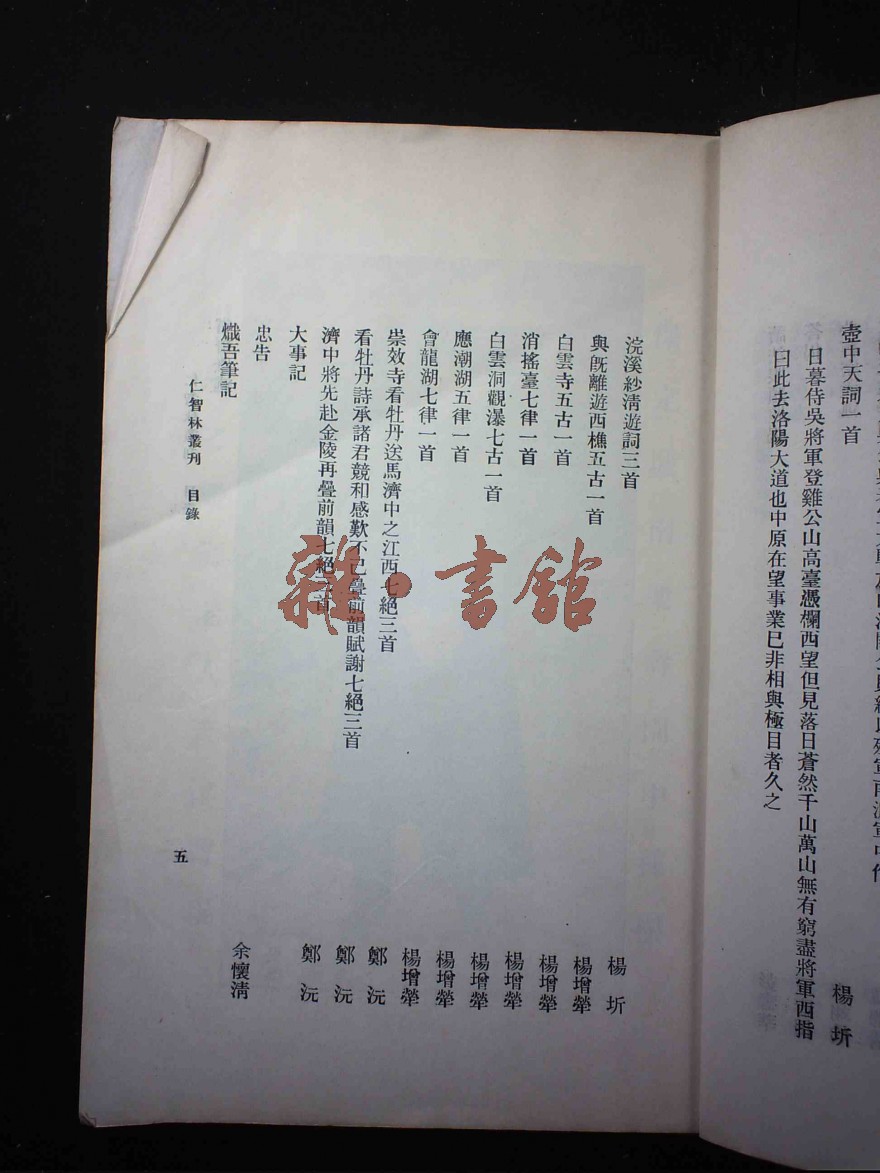 壺中天詞一首 楊圻
日暮侍吳將軍登雞公山高臺憑欄西望但見落日蒼然千山萬山無有窮盡將軍西指
曰此去洛陽大道也中原在望事業已非相與極目者久之
浣溪紗清遊詞三首 楊圻
與旣離遊西樵五古一首 楊增犖
白雲寺五古一首 楊增犖
消搖臺七律一首 楊增犖
白雲洞觀瀑七古一首 楊增犖
應潮湖五律一首 楊增犖
會龍湖七律一首 楊增犖
崇效寺看牡丹送馬濟中之江西七絕三首 鄭沅
看牡丹詩承諸君競和感歎不已疊前韻賦謝七絕三首 鄭沅
濟中將先赴金陵再疊前韻七絕三首 鄭沅
大事記
忠告
熾吾筆記 余懷清
仁智林叢刊 目錄
五
雜·書館